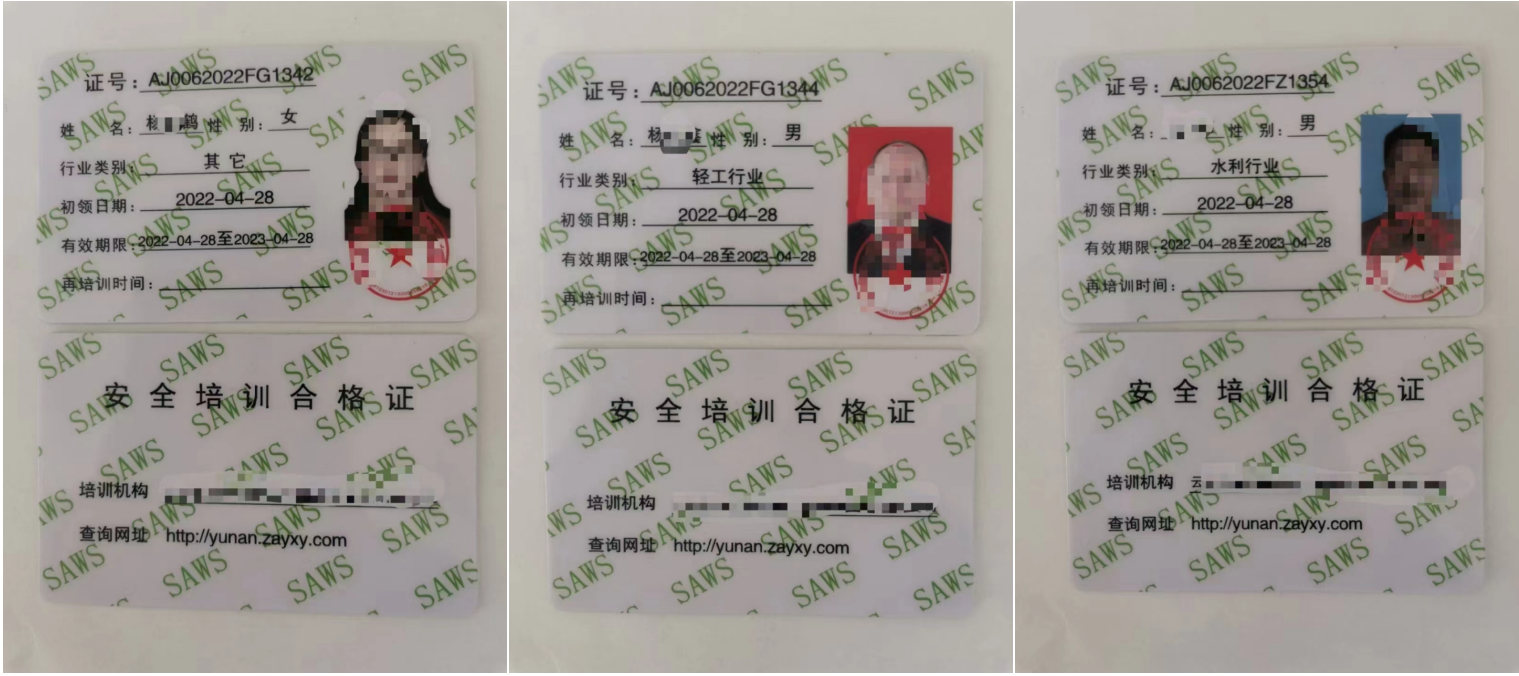 证号：AJ0062022FG1342
姓 名：杨 鹤 性 别：女
行业类别：其它
初领日期：2022-04-28
有效期限：2022-04-28至2023-04-28
再培训时间：
安全培训合格证
培训机构
查询网址 http://yunan.zayxy.com
证号：AJ0062022FG1344
姓 名：杨 性 别：男
行业类别：轻工行业
初领日期：2022-04-28
有效期限：2022-04-28至2023-04-28
再培训时间：
安全培训合格证
培训机构
查询网址 http://yunan.zayxy.com
证号：AJ0062022FZ1354
姓 名： 性 别：男
行业类别：水利行业
初领日期：2022-04-28
有效期限：2022-04-28至2023-04-28
再培训时间：
安全培训合格证
培训机构 云
查询网址 http://yunan.zayxy.com
SAWS